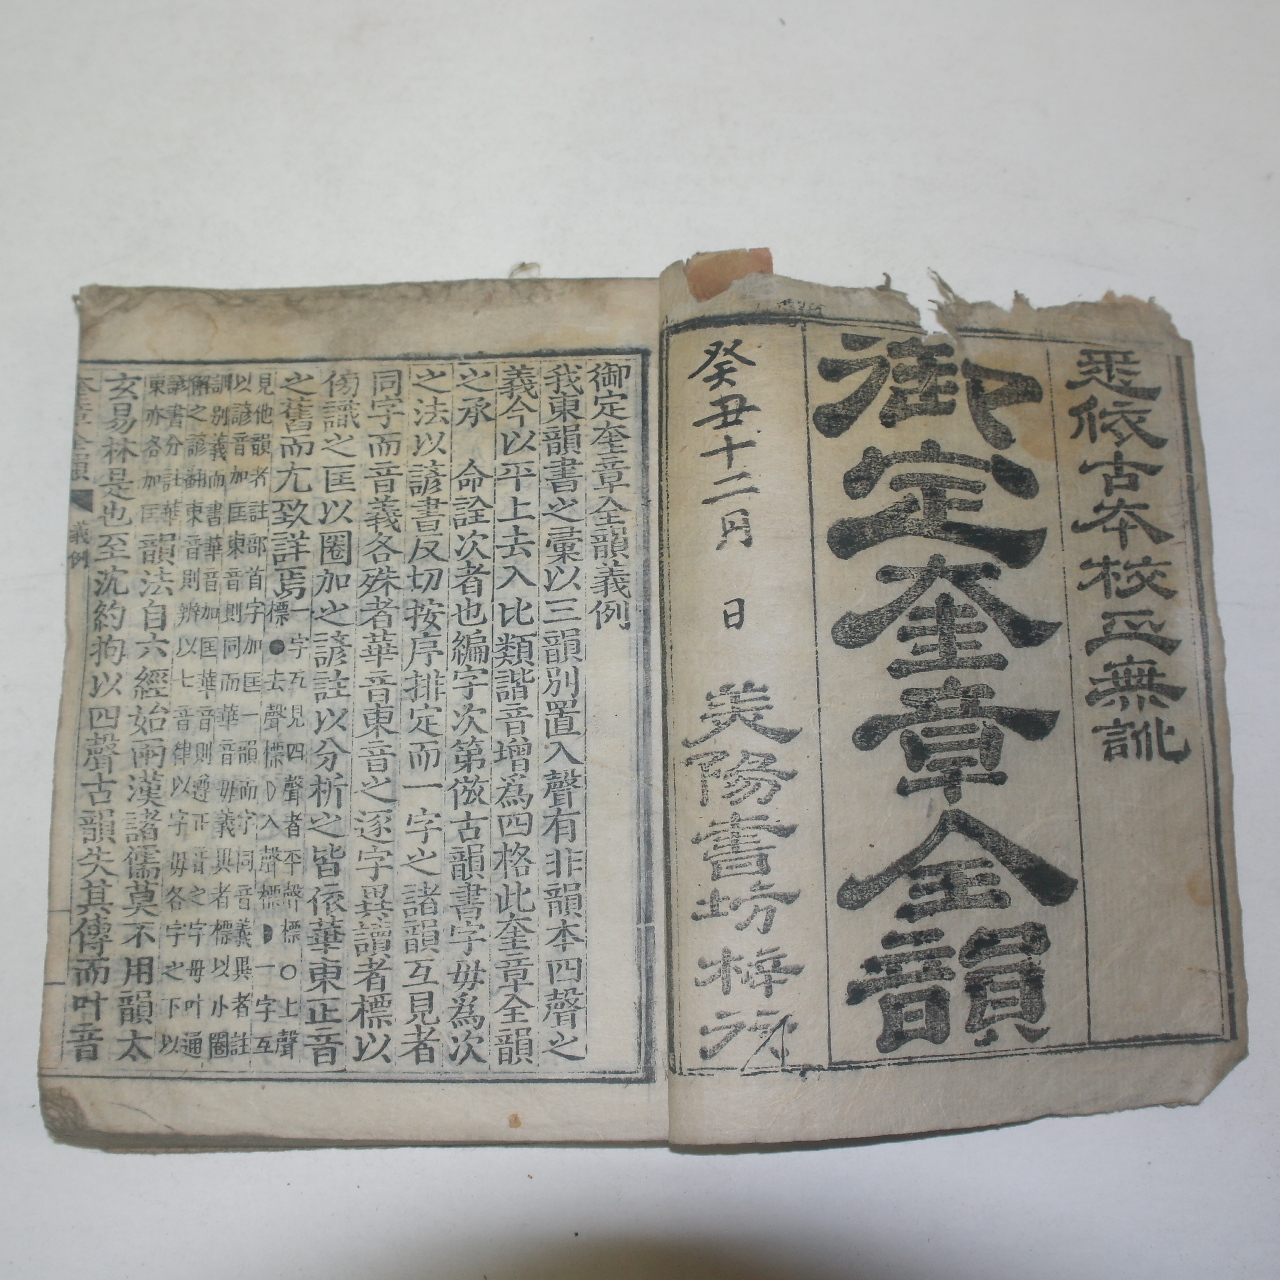 悉依古本校正無訛
御定奎章全韻
癸丑十二月 日 美陽書坊梓行
御定奎章全韻義例
我東韻書之彙以三韻別置入聲有非韻本四聲之
義今以平上去入比類諧音增爲四格此奎章全韻
之承 命詮次者也編字次第倣古韻書字母爲次
之法以諺書反切按序排定而一字之諸韻互見者
同字而音義各殊者華音東音之逐字異讀者標以
傍識之匡以圈加之諺註以分析之皆依華東正音
之舊而尢致詳焉一字互見四聲者平聲標○上聲
標●去聲標◗入聲標◗一字互
見他韻者註部首字加匡一韻而字同音義異者註
以諺音加匡東音則同而華音毋義異者標以小圈
訓別義而書華音加匡華音則遵正音之字母叶通
俑之諺翻東音則辨以七音律以字母各字之下以
諺書分註華
東亦各加匡韻法自六經始而漢諸儒莫不用韻太
玄易林是也至沈約拘以四聲古韻失其傳而叶音
義例